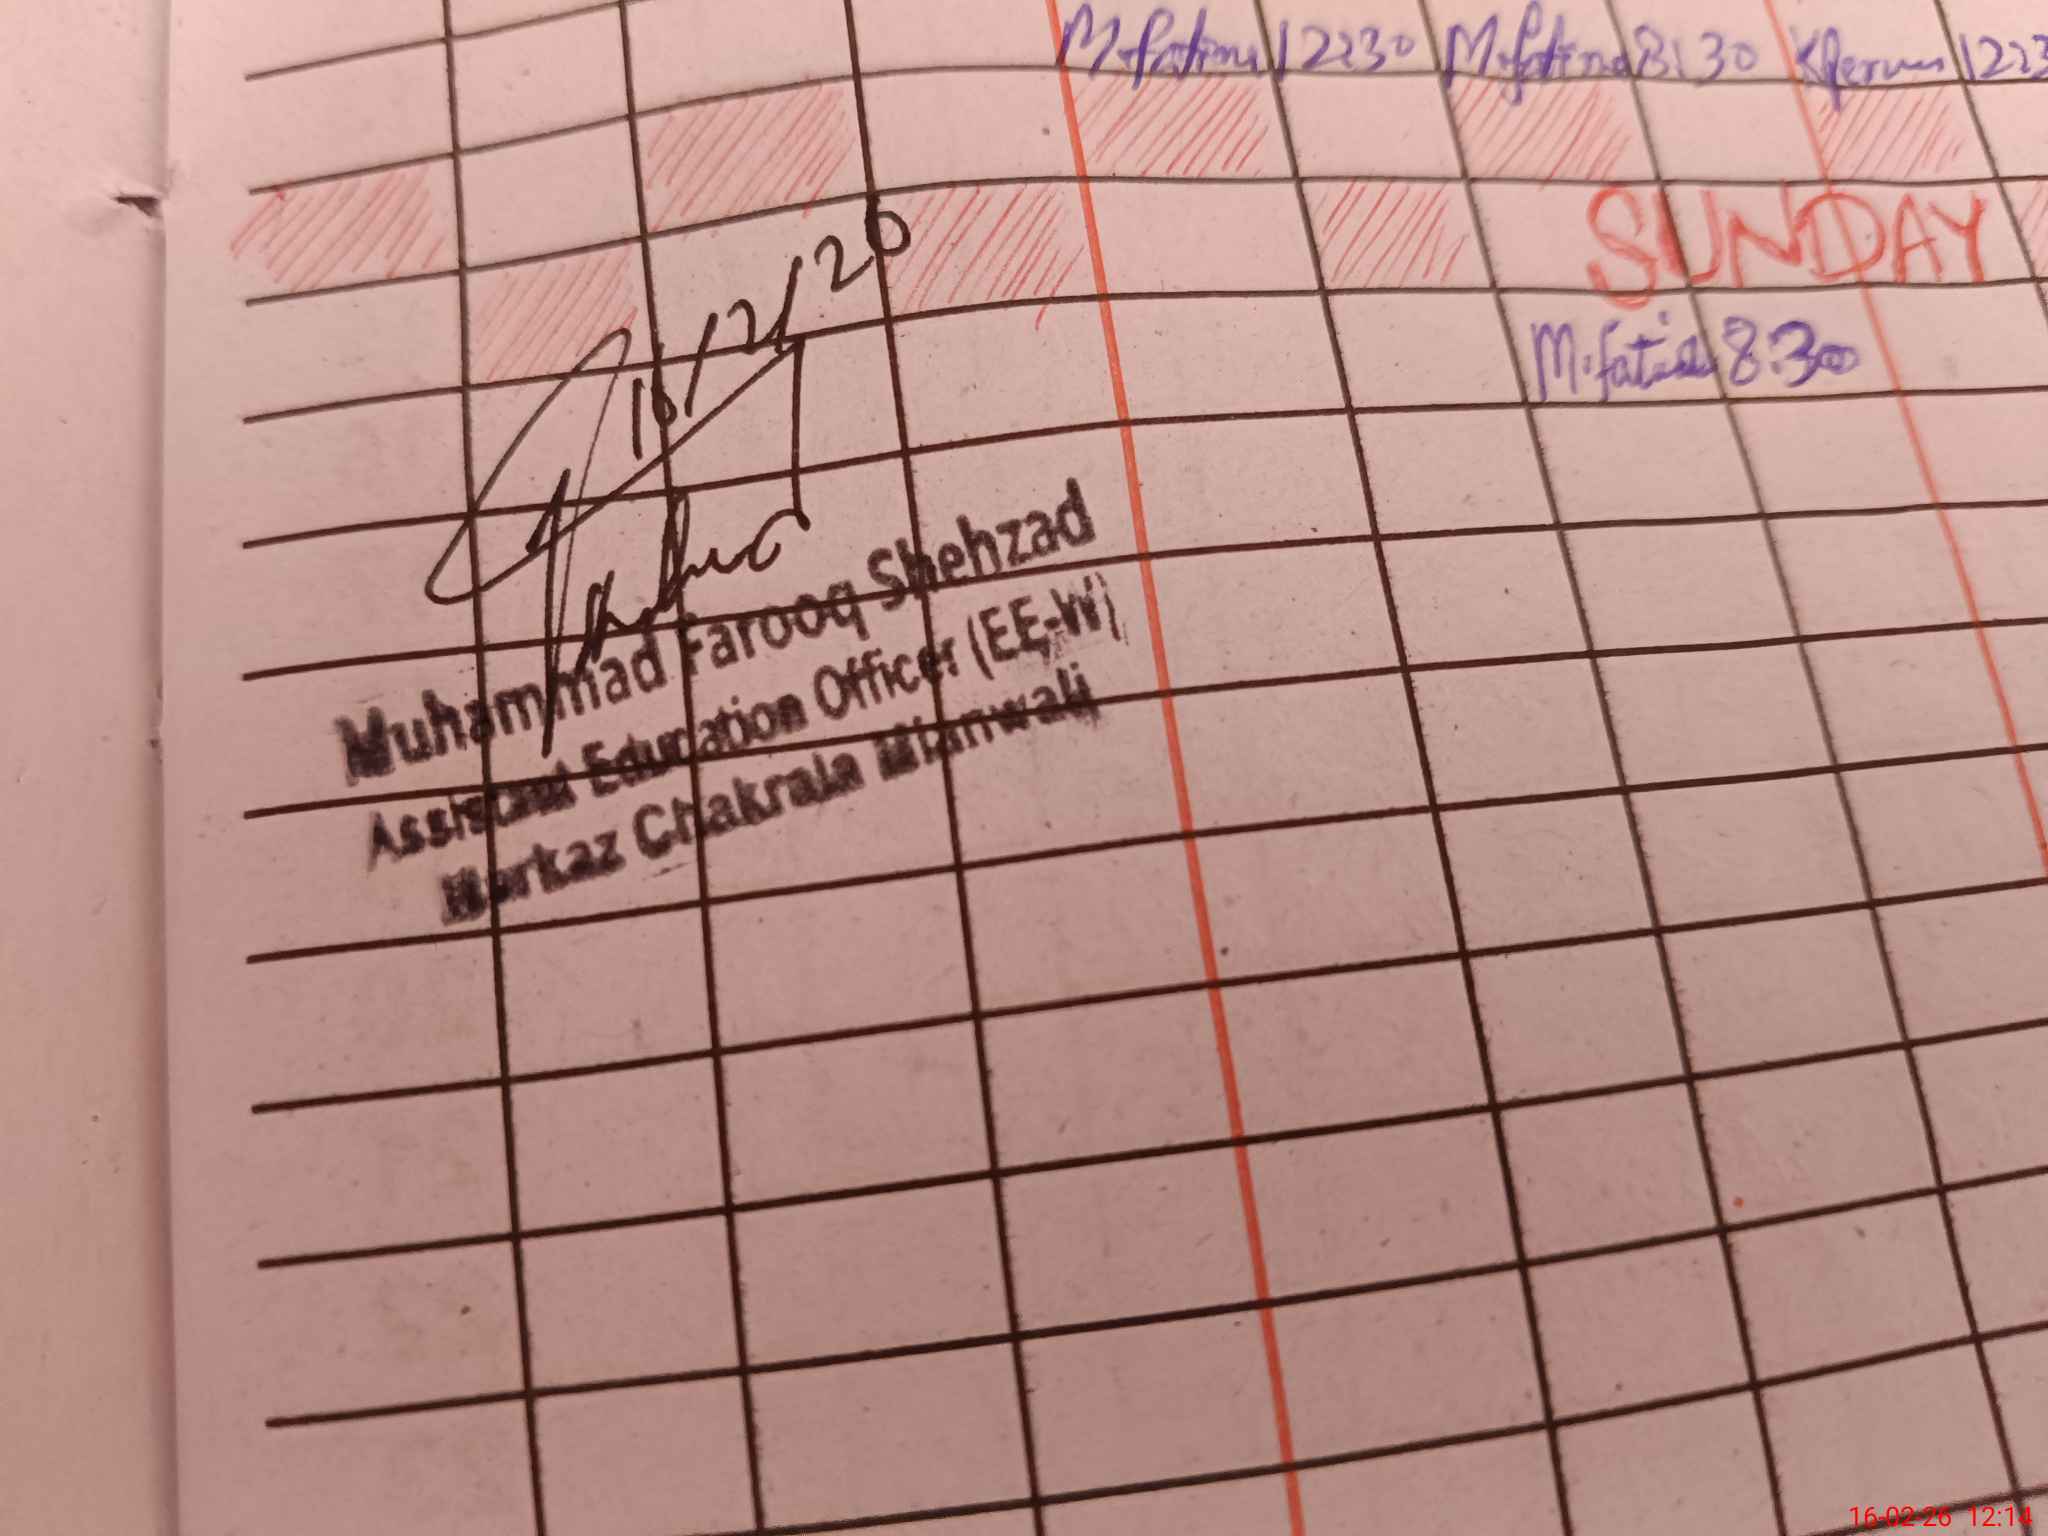 M.fatima 12:30 M.fatima 8:30 K Perveen 12:3
SUNDAY
M.fatima 8:30
16/2/26
Muhammad Farooq Shehzad
Assistant Education Officer (EE-W)
Markaz Chakrala Mianwali
16-02-26 12:14